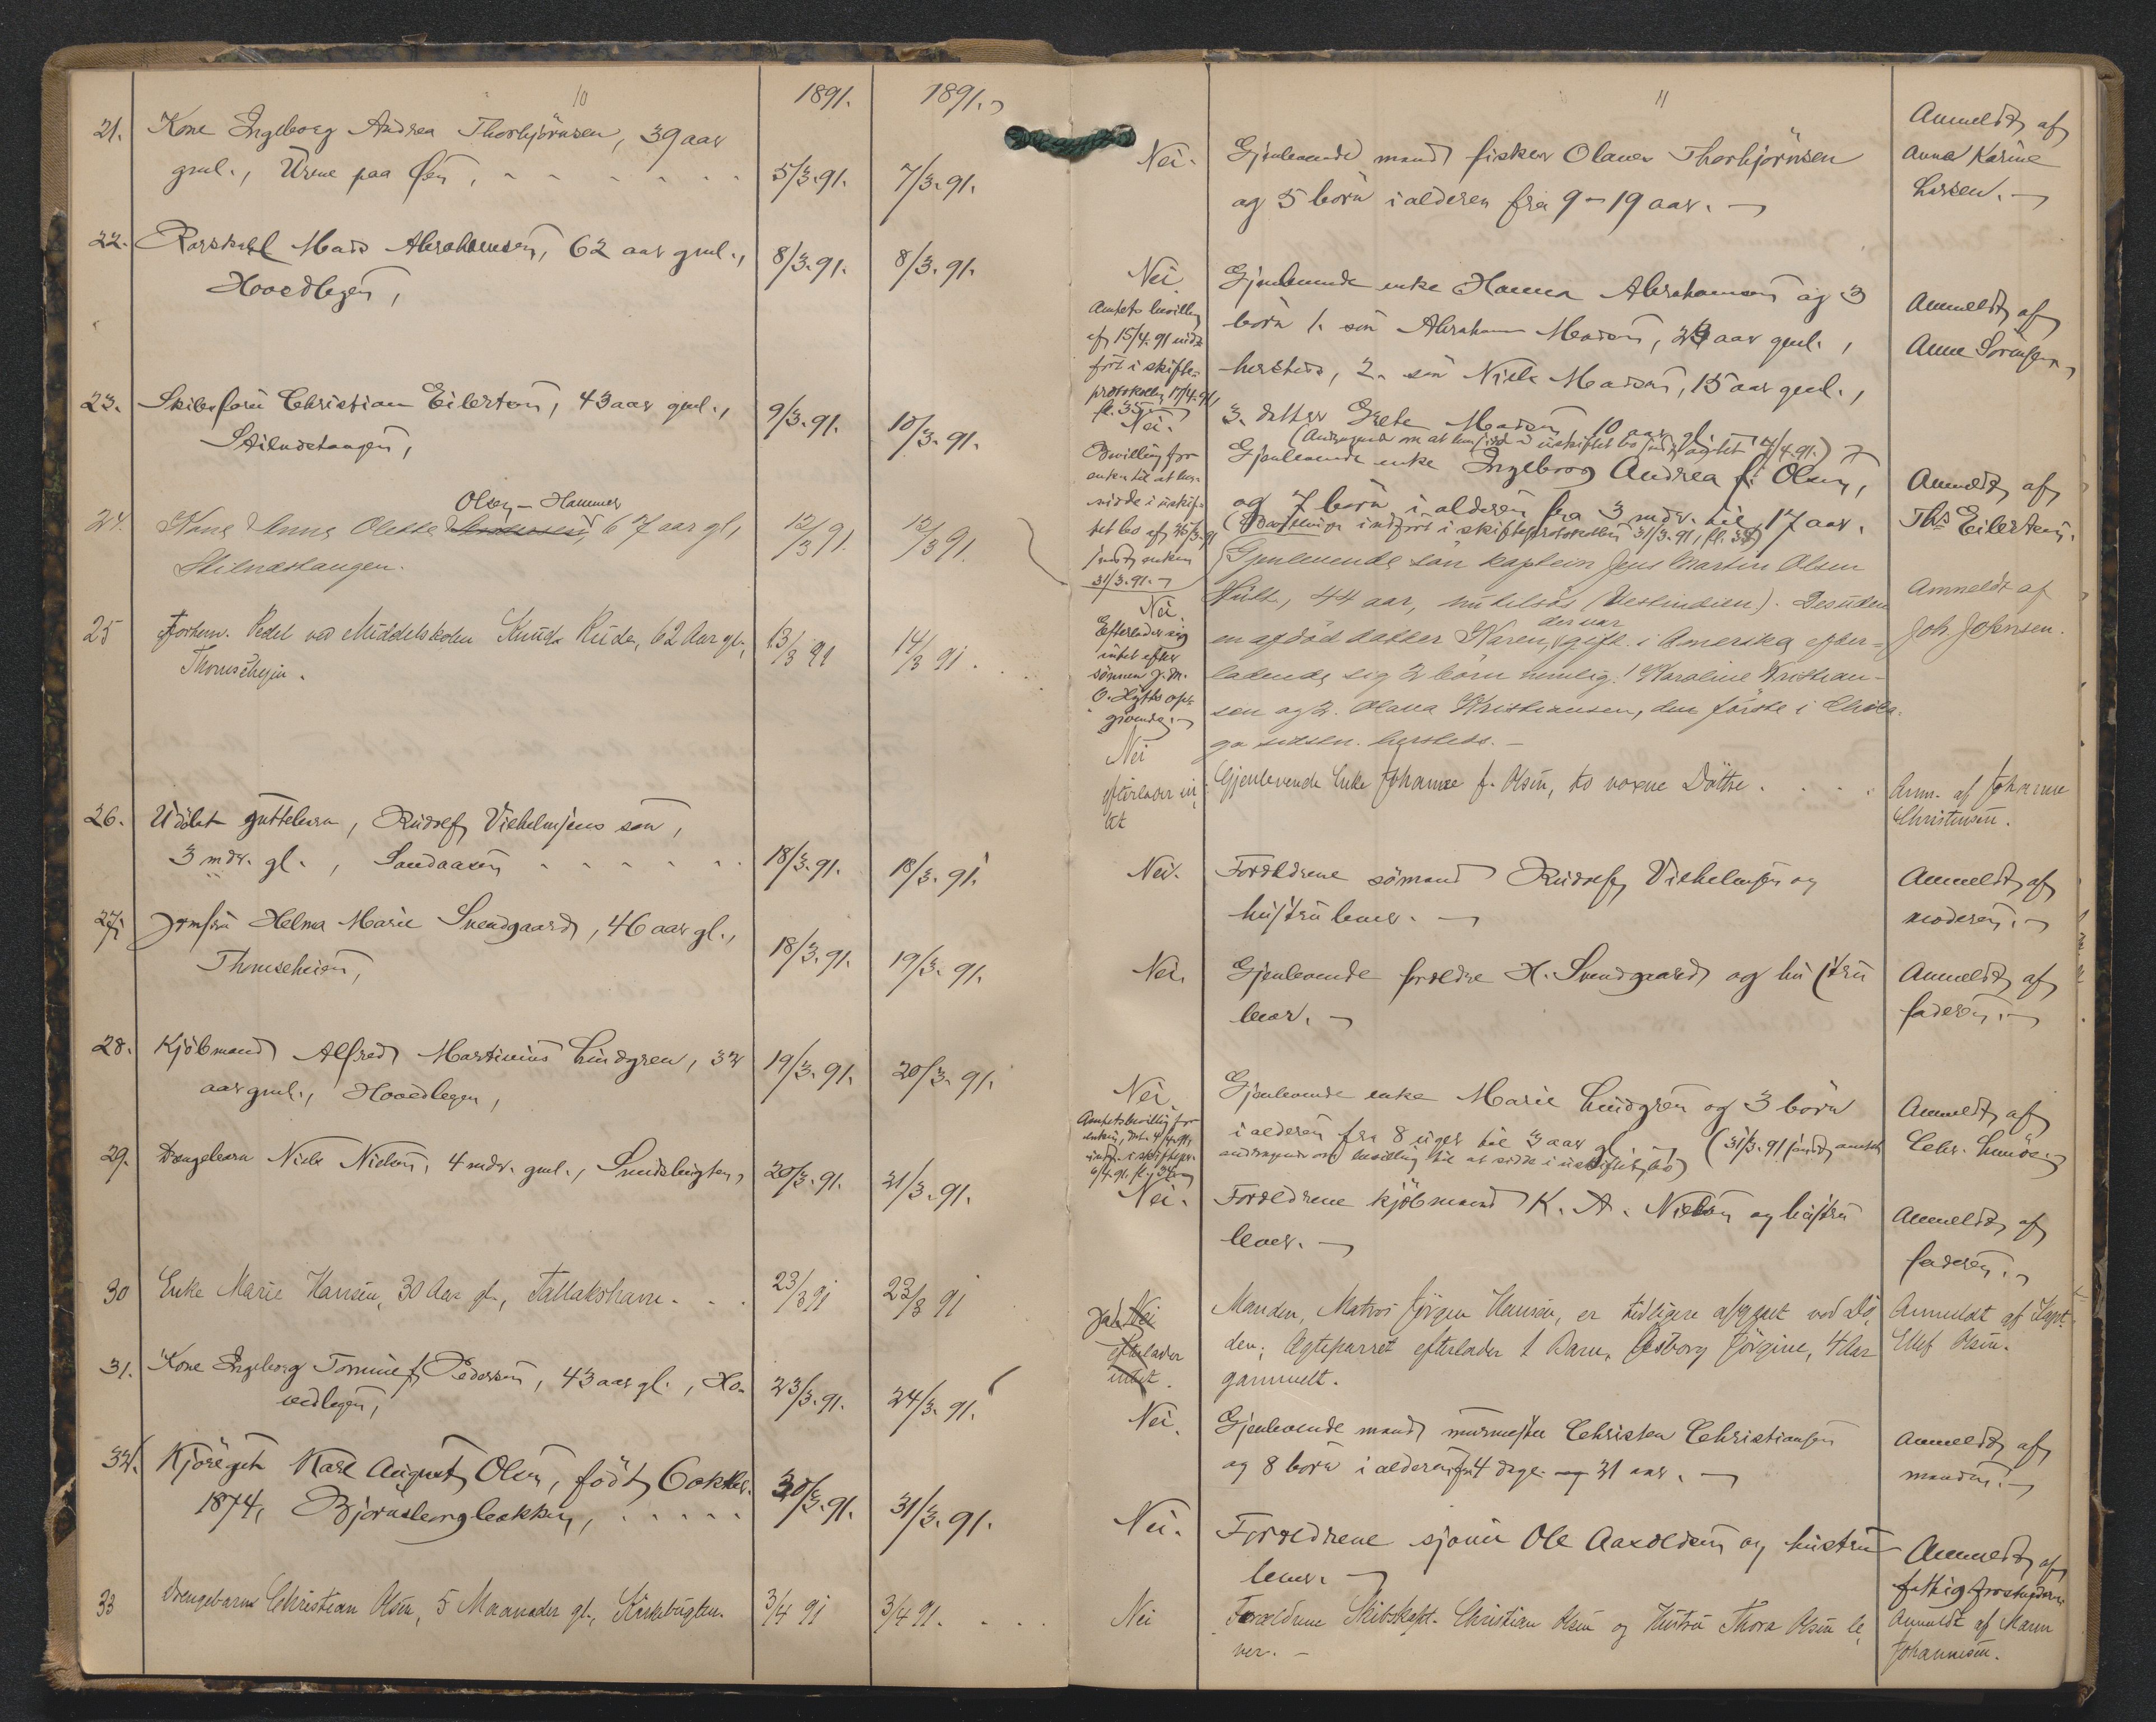 10
1891.
1891.
21. Kone Ingeborg Andrea Thorbjörnsen, 39 aar
gml., Urne paa Öen,
5/3.91.
7/3.91.
22. Mads Abrahamsen, 62 aar gml.,
Hovedlegen,
8/3.91.
8/3.91.
23. Skibsförer Christian Eilertsen, 43 aar gml.,
Stilnestangen,
9/3.91.
10/3.91.
Olsen - Hammer
24. Kone Anne Olette 67 aar gl,
Stilnestangen.
12/3 91.
12/3 91.
25 Forhenv. Pedel ved Middelskolen Knud Rude, 62 Aar gl.,
Thomsehejen.
13/3 91
14/3 91.
26. Udöbt guttebarn, Rudolf Vilhelmsens sön,
3 mdr. gl., Sandaasen
18/3.91.
18/3.91.
27. Jomfru Helma Marie Svendgaard, 46 aar gl.,
Thomseheien,
18/3.91.
19/3.91.
28. Kjöbmand Alfred Martinius Lindgren, 32
aar gml., Hovedlegen,
19/3.91.
20/3.91.
29. Drengebarn Niels Nielsen, 4 mdr. gml., Smedsbugten,
20/3.91.
21/3.91.
30 Enke Marie Hansen, 30 Aar gl., Tallakshavn.
23/3 91
23/3 91
31. Kone Ingeborg Tomine f. Pedersen, 43 aar gl., Ho-
vedlegen,
23/3.91.
24/3.91.
32. Kjöregut Karl August Olsen, födt 6 oktbr.
1874, Björnsberglökken,
30/3.91.
31/3.91.
33 Drengebarn Christian Olsen, 5 Maaneder gl., Kirkebugten.
3/4 91
3/4 91.
11
Nei. Gjenlevende mand fisker Olaves Thorbjörnsen
og 5 börn i alderen fra 9 - 19 aar.
Anmeldt af
Anna Karine
Larsen.
Nei.
Amtets bevilling
af 15/4.91 ind
fört i skifte-
protokollen 17/4.91,
fl. 35
Gjenlevende enke Hanna Abrahamsen og 3
börn 1. sön Abraham Madsen, 23 aar gml.,
hersteds, 2. sön Niels Madsen, 15 aar gml.,
3. datter Grete Madsen 10 aar gl.
(Andragende om at hensidde i uskiftet bo 14/4.91.)
Anmeldt af
Anne Sörensen
Nei.
Bevilling for
enken til at hen-
sidde i uskif-
tet bo af
sendt enken
31/3.91.
Gjenlevende enke Ingeborg Andrea f. Olsen,
og 7 börn i alderen fra 3 mdr. til 17 aar.
(Bevillingen indfört i skifteprotokollen 31/3.91, fl. 35)
Anmeldt af
Ths Eilertsen.
Nei.
Efterlader sig
intet efter
sönnen J. M.
O. Hylts op-
givende.
Gjenlevende sön kaptein Jens Martin Olsen
Hült, 44 aar, (Vestindien). Desuden
der var
en afdöd datter Karen, gift i Amerika efter-
ladende sig 2 börn nemlig: 1 Karoline Kristian-
sen og 2. Olava Kristiansen, den förste i Chica-
go sidstn. hersteds.
Anmeldt af
Joh Johnsen.
Nei
efterlader in-
tet
Gjenlevende Enke Johanne f. Olsen, to voxne Döttre.
Anm. af Johanne
Christensen.
Nei. Forældrene sömand Rudolf Vilhelmsen og
hustru lever.
Anmeldt af
moderen.
Nei. Gjenlevende forældre H. Svendgaard og hustru
lever.
Anmeldt af
faderen.
Nei.
Amtets bevilling for
enken, dat. 4/4.91,
indf. i skiftepr.
6/4.91. fl. 34
Gjenlevende enke Marie Lindgren og 3 börn
i alderen fra 8 uger til 3 aar gl. (31/3.91 sendt amtet
andragende om bevilling til at sidde i uskiftet bo)
Anmeldt af
Chr. Lunde.
Nei. Forældrene kjöbmand K. A. Nielsen og hustru
lever.
Anmeldt af
faderen.
Ja. Nei
efterlader
intet.
Manden, Matros Jörgen Hansen, er tidligere afgaaet ved Dö-
den; Ægteparret efterlader 1 Barn, Aasborg Jörgine, 4 Aar
gammelt.
Anmeldt af Kapt.
Ellef Olsen.
Nei. Gjenlevende mand murmester Christen Christiansen
og 8 börn i alderen fra 4 dage - 21 aar.
Anmeldt af
manden.
Nei. Forældrene sjouer Ole Aaroldsen og hustru
lever.
Anmeldt af
fattigforstanderen
Nei Forældrene Skibskapt. Christian Olsen og Hustru Thora Olsen le-
ver.
Anmeldt af Maren
Johannesen.